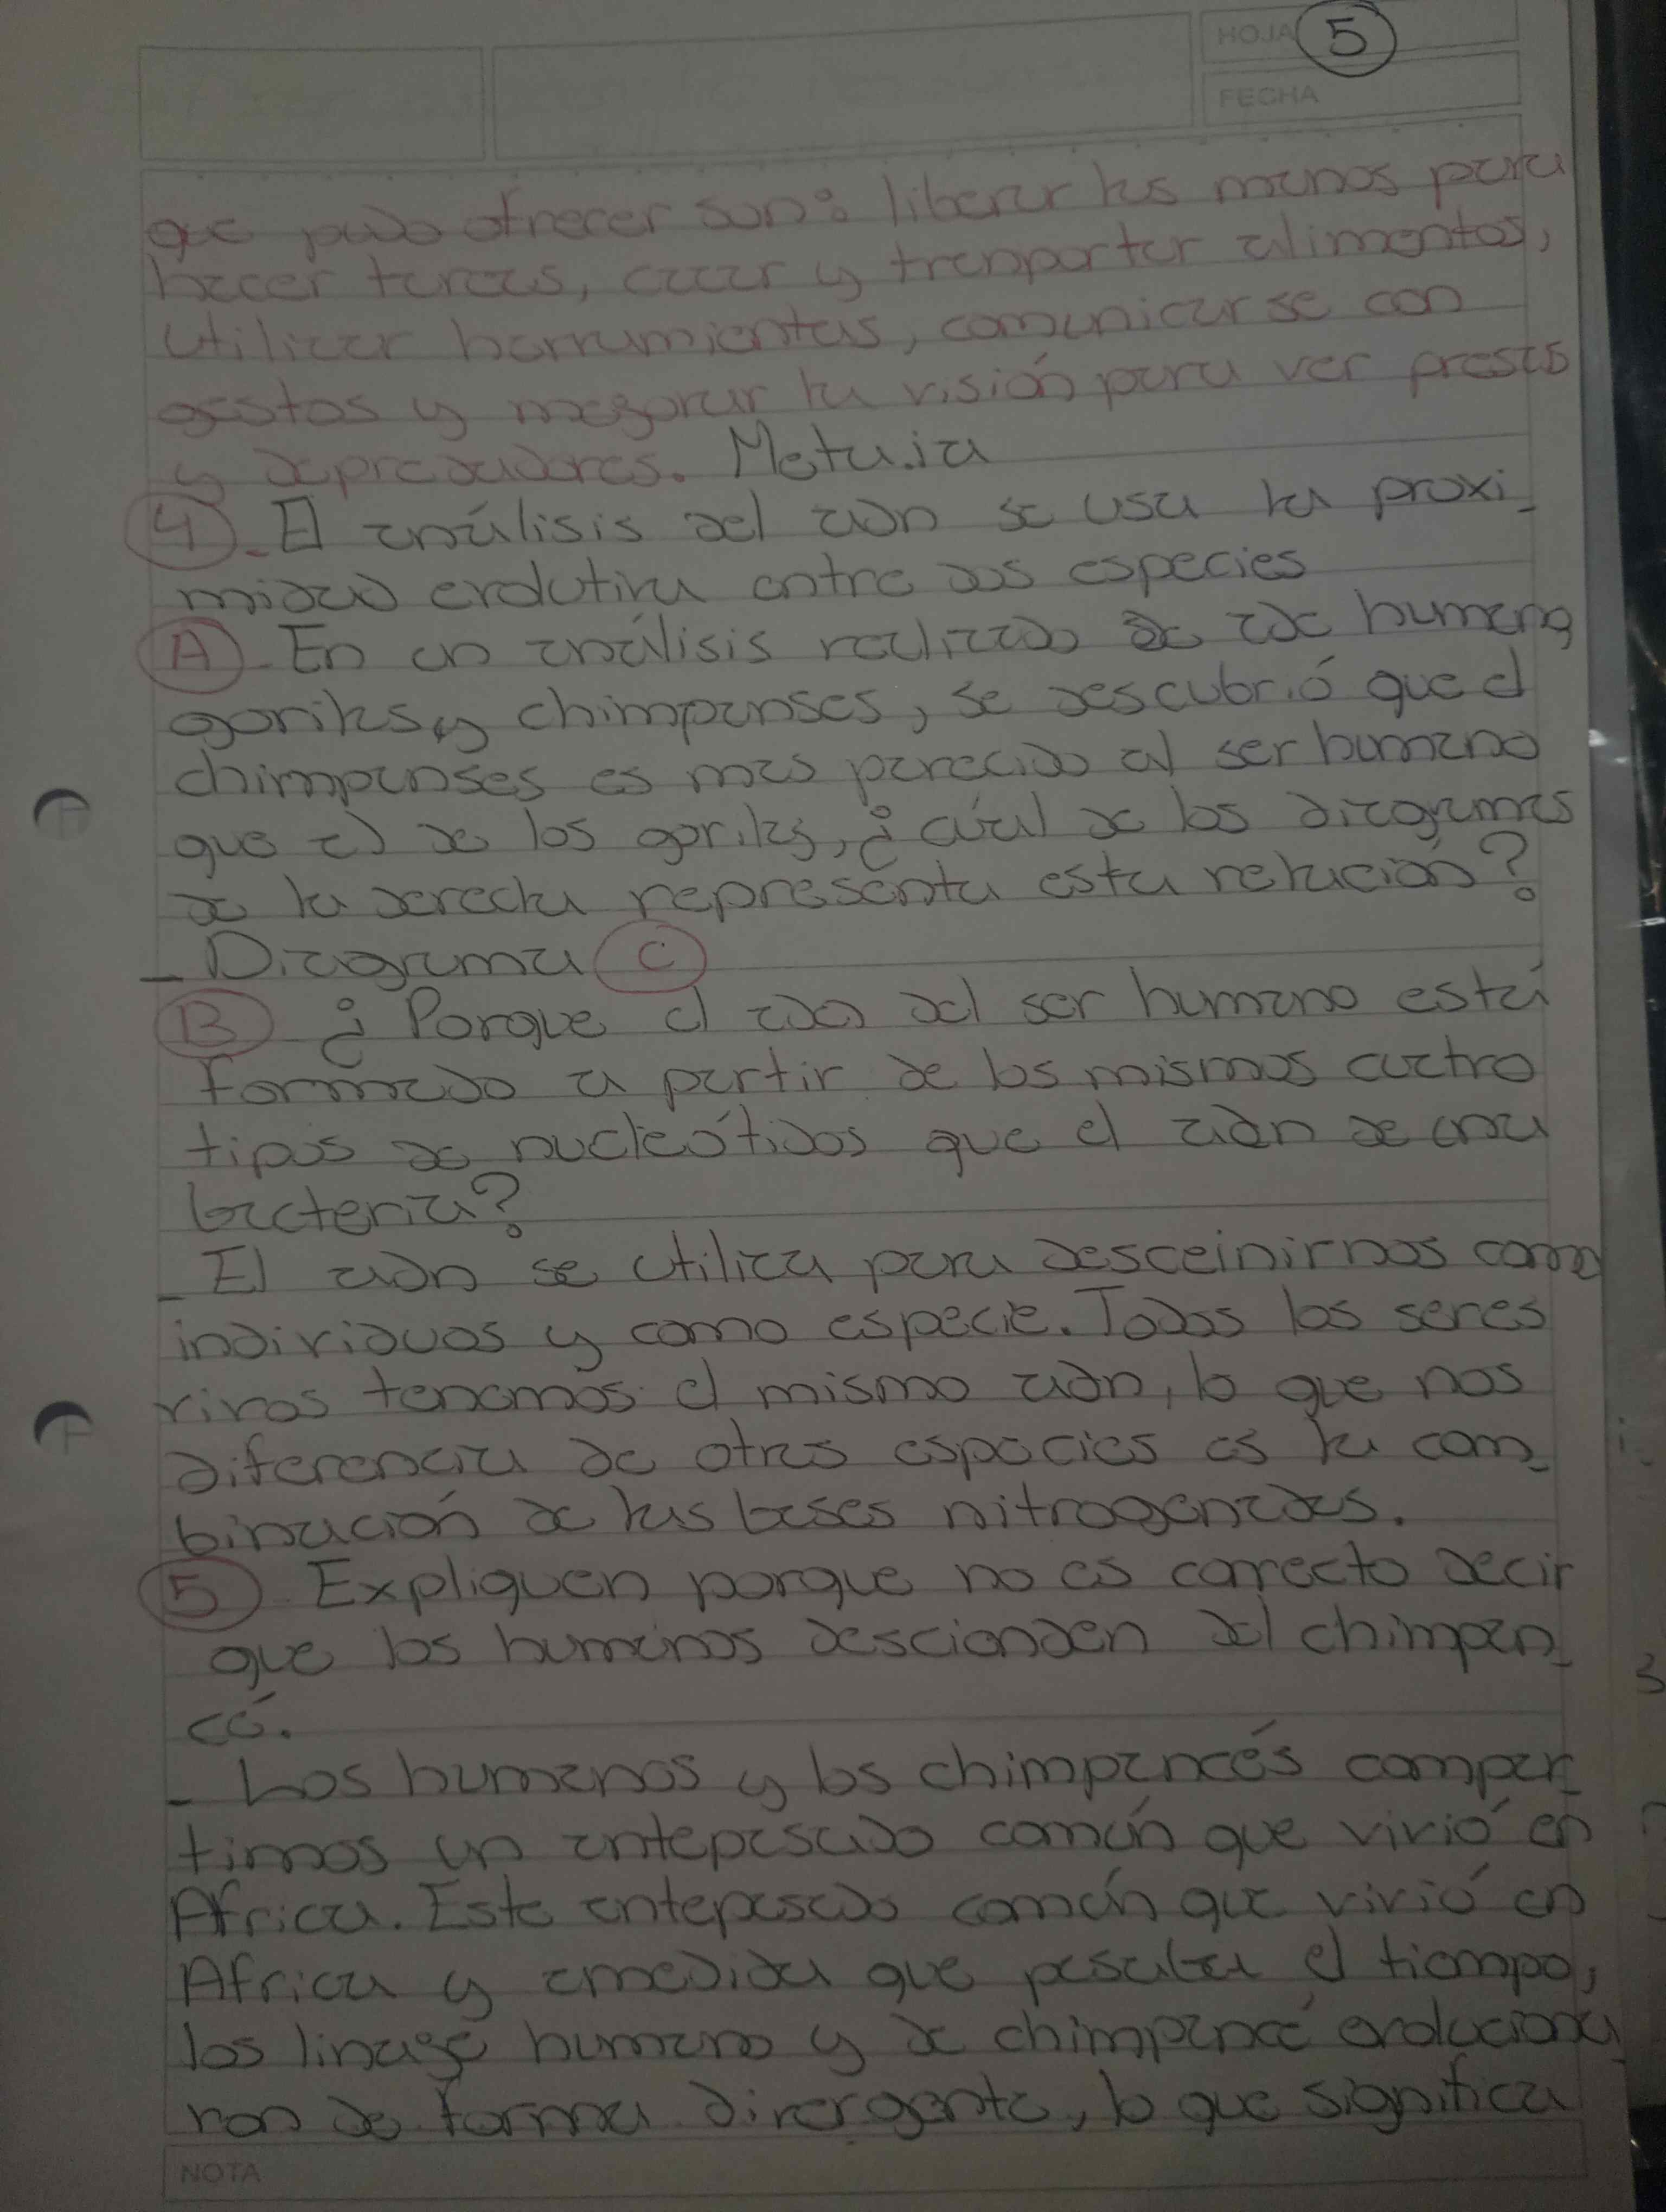 HOJA 5
FECHA
que pudo ofrecer son: liberar las manos para
hacer tareas, cazar y tranportar alimentos,
utilizar harramientas, comunicarse con
gestos y mejorar la visión para ver presas
y depredadores.
4 - El análisis del adn se usa la proxi_
midad evolutiva entre dos especies
A - En un análisis realizado de adn humano,
gorilas y chimpanses, se descubrió que el
chimpanses es mas parecido al ser humano
que el de los gorilas, ¿cuál de los diagramas
de la derecha representa esta relación?
- Diagrama C
B ¿Porque el adn del ser humano está
formado a partir de los mismos cuatro
tipos de nucleótidos que el adn de una
bacteria?
- El adn se utiliza para como
individuos y como especie. Todos los seres
vivos tenemos el mismo adn, lo que nos
diferencia de otras especies es la com_
binación de las bases nitrogenadas.
5 Expliquen porque no es correcto decir
que los humanos descienden del chimpan_
cé.
- Los humanos y los chimpancés compar_
timos un antepasado común que vivió en
Africa. Este antepasado común que vivió en
Africa y amedida que pasaba el tiempo,
los linaje humano y de chimpancé evoluciona_
ron de forma divergente, lo que significa
NOTA